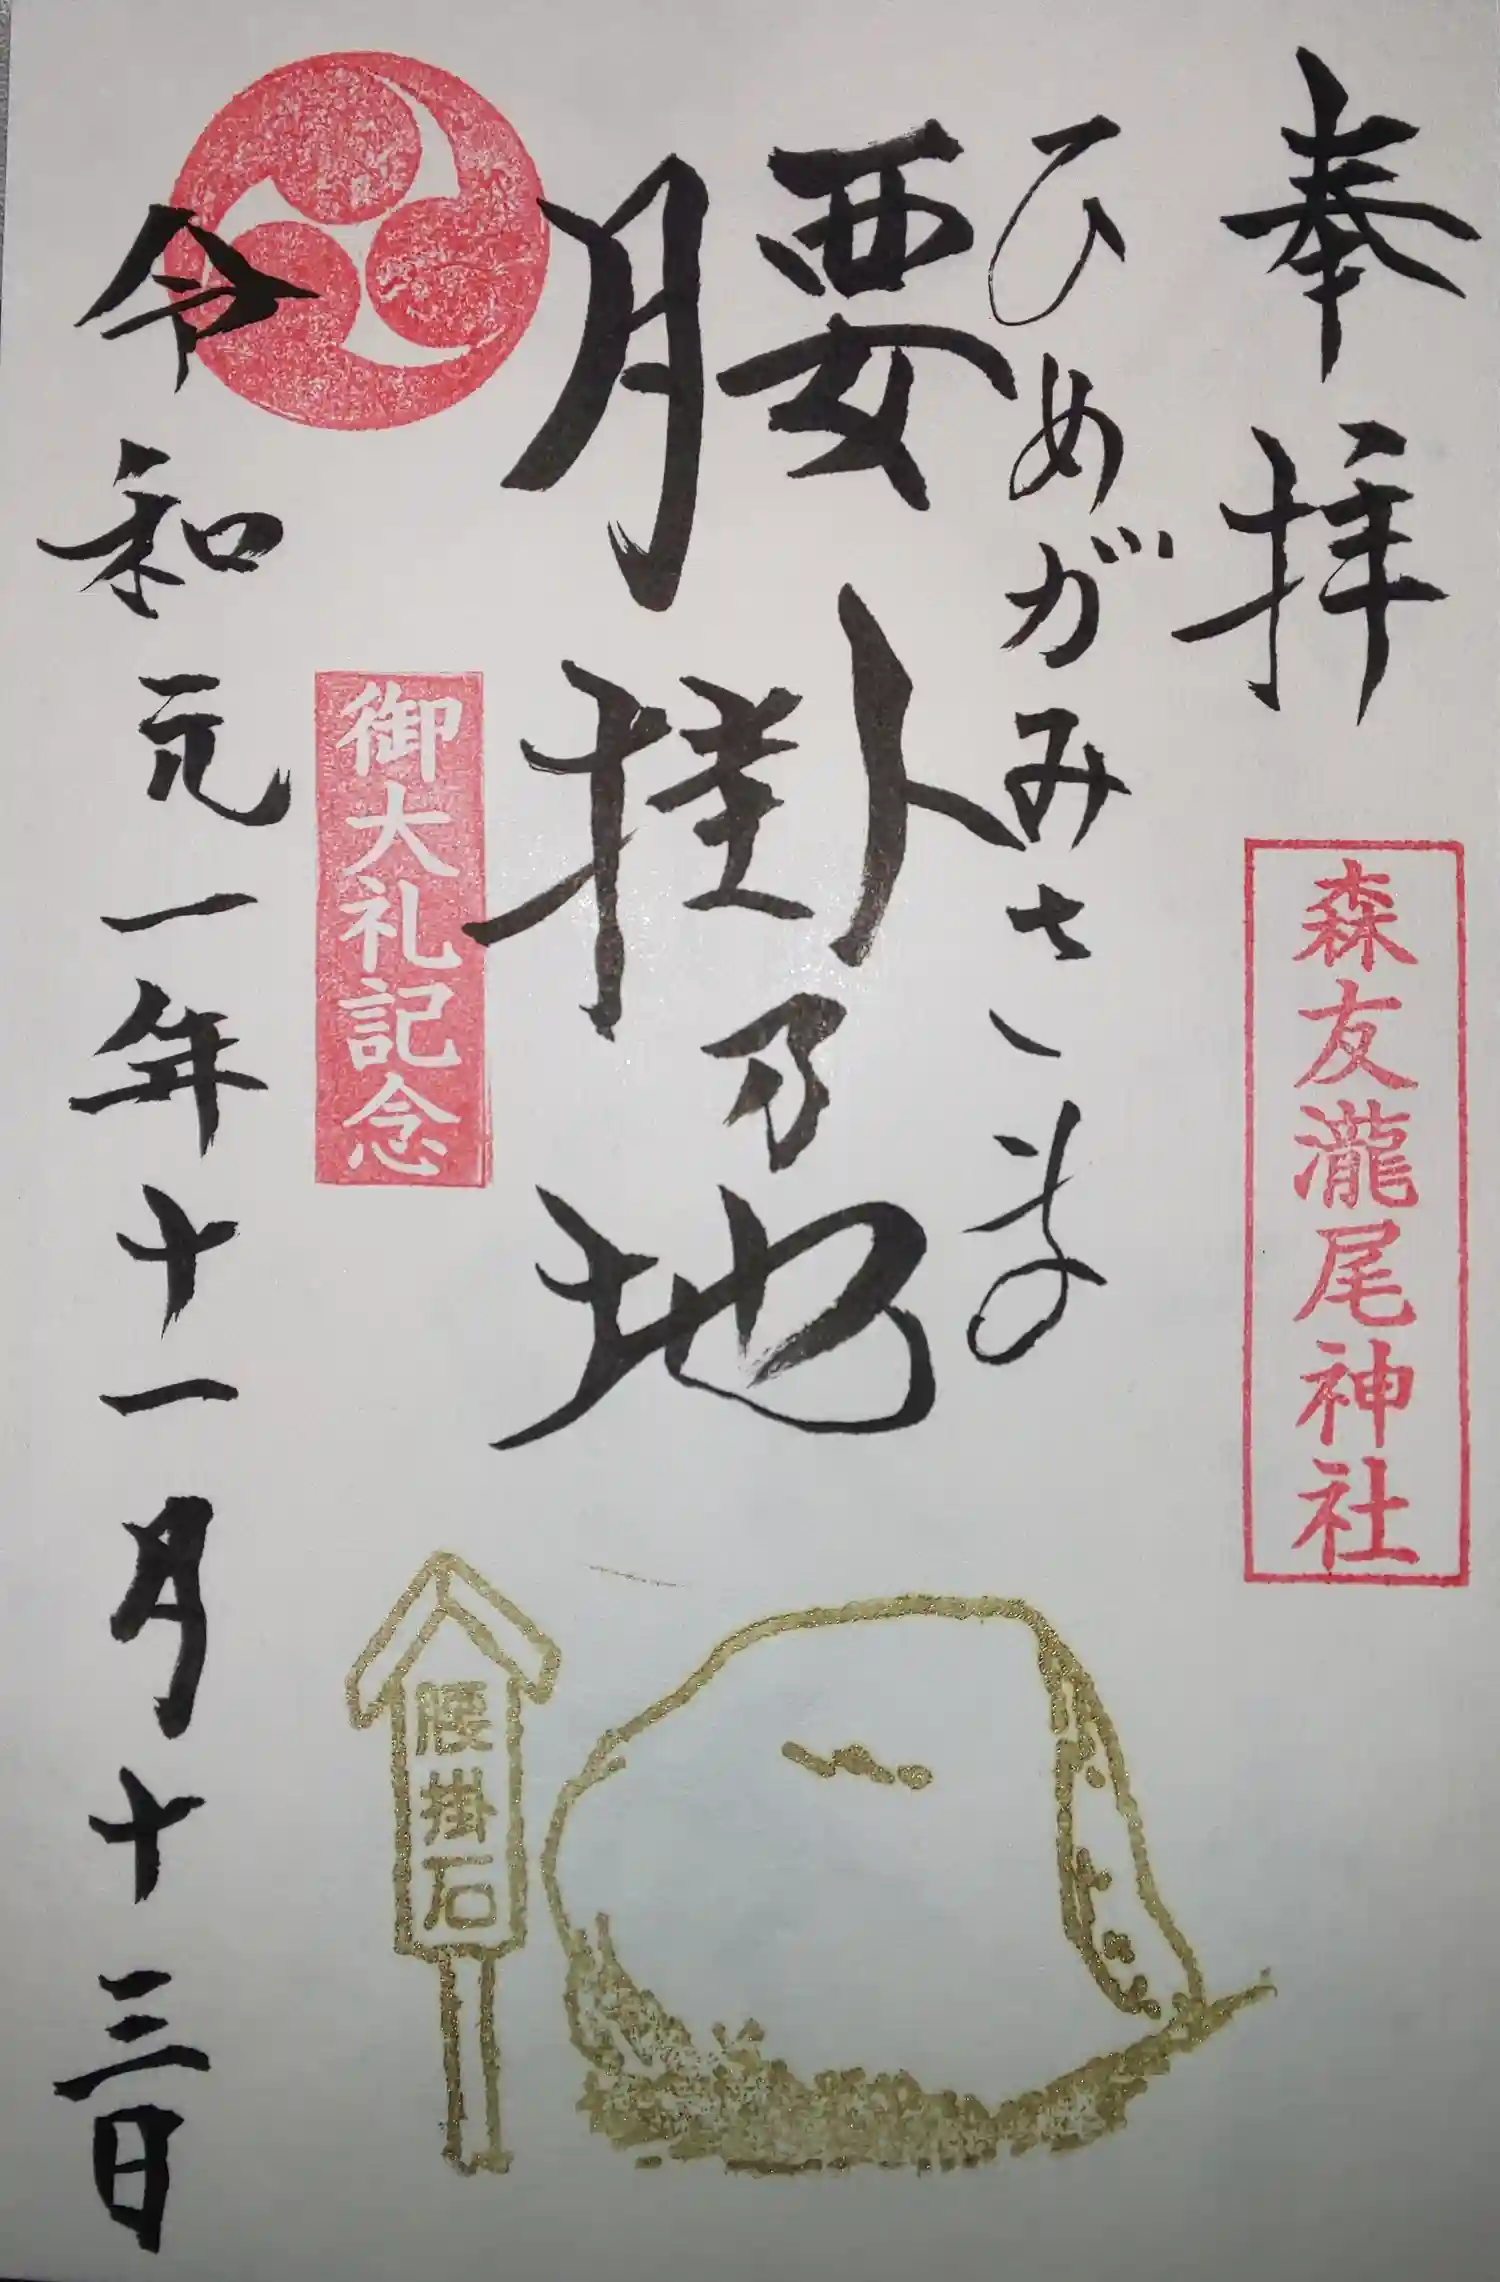 奉拝
森友瀧尾神社
ひめがみさま
腰掛乃地
御大礼記念
令和元一年十一月十三日
腰掛石